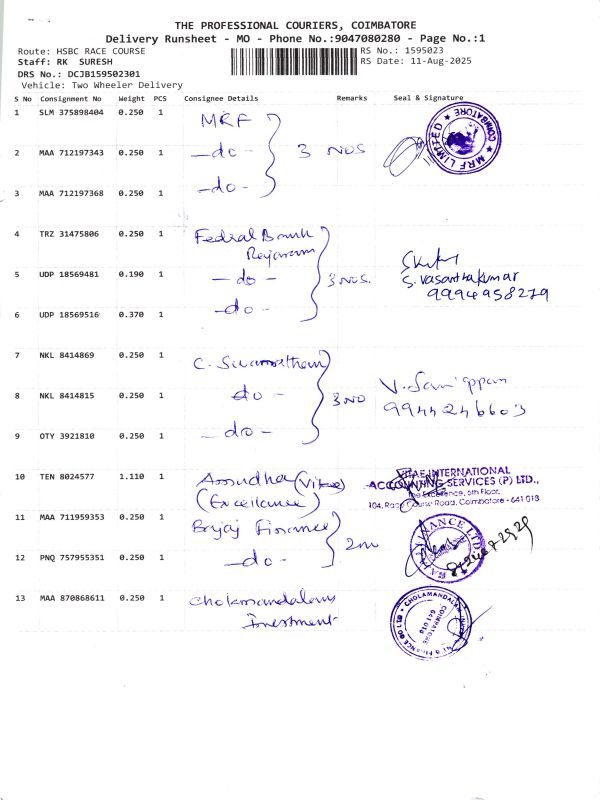 THE PROFESSIONAL COURIERS, COIMBATORE
Delivery Runsheet - MO - Phone No.:9047080280 - Page No.:1
Route: HSBC RACE COURSE RS No.: 1595023
Staff: RK SURESH RS Date: 11-Aug-2025
DRS No.: DCJB159502301
Vehicle: Two Wheeler Delivery
S No Consignment No Weight PCS Consignee Details Remarks Seal & Signature
1 SLM 375898404 0.250 1 MRF
2 MAA 712197343 0.250 1 -do- 3 NOS
MRF LIMITED ★ COIMBATORE ★
3 MAA 712197368 0.250 1 -do-
4 TRZ 31475806 0.250 1 Fedral Bank
5 UDP 18569481 0.190 1 -do- 3 NOS. S. Vasanthakumar
9994958279
6 UDP 18569516 0.370 1 -do-
7 NKL 8414869 0.250 1 C.
8 NKL 8414815 0.250 1 -do- 3 NO
9944246603
9 OTY 3921810 0.250 1 -do-
10 TEN 8024577 1.110 1 Amudha (Vitae) VITAE INTERNATIONAL
ACCOUNTING SERVICES (P) LTD.,
(Excellance) The Excellence, 5th Floor,
104, Race Course Road, Coimbatore - 641 018
11 MAA 711959353 0.250 1 Bajaj Finance
BAJAJ FINANCE LTD
12 PNQ 757955351 0.250 1 -do-
13 MAA 870868611 0.250 1 Cholamandalam
Investment
CHOLAMANDALAM
COIMBATORE
641 018